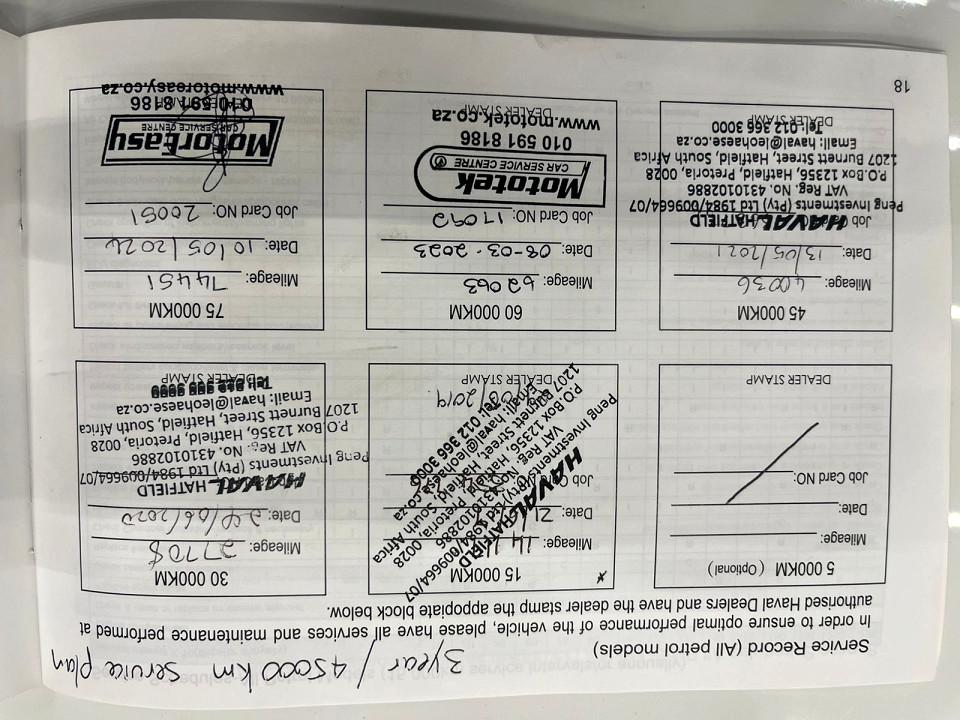 3 year / 45000 km service plan
Service Record (All petrol models)
In order to ensure optimal performance of the vehicle, please, have all services and maintenance performed at
authorised Haval Dealers and have the dealer stamp the appopiate block below.
5 000KM (Optional)
Mileage:
Date:
Job Card NO:
DEALER STAMP
* 15 000KM
Mileage:
Date: 21
Job
HAVAL HATFIELD
Peng Investments (Pty) Ltd 1984/009664/07
VAT Reg. No. 4310102886
P.O.Box 12356, Hatfield, Pretoria, 0028
1207 Burnett Street, Hatfield, South Africa
Email: haval@leohaese.co.za
Tel: 012 366 3000
DEALER STAMP
30 000KM
Mileage: 27708
Date: 24/06/2020
HAVAL HATFIELD
Peng Investments (Pty) Ltd 1984/009664/07
VAT Reg. No. 4310102886
P.O.Box 12356, Hatfield, Pretoria, 0028
1207 Burnett Street, Hatfield, South Africa
Email: haval@leohaese.co.za
DEALER STAMP
45 000KM
Mileage: 40036
Date: 13/05/2021
Job Card
HAVAL HATFIELD
Peng Investments (Pty) Ltd 1984/009664/07
VAT Reg. No. 4310102886
P.O.Box 12356, Hatfield, Pretoria, 0028
1207 Burnett Street, Hatfield, South Africa
Email: haval@leohaese.co.za
Tel: 012 366 3000
DEALER STAMP
60 000KM
Mileage: 62063
Date: 08-03-2023
Job Card NO: 17092
Mototek
CAR SERVICE CENTRE
010 591 8186
www.mototek.co.za
DEALER STAMP
75 000KM
Mileage: 74451
Date: 10/05/2024
Job Card NO: 20051
MotorEasy
CAR SERVICE CENTRE
010 591 8186
DEALER STAMP
www.motoreasy.co.za
18